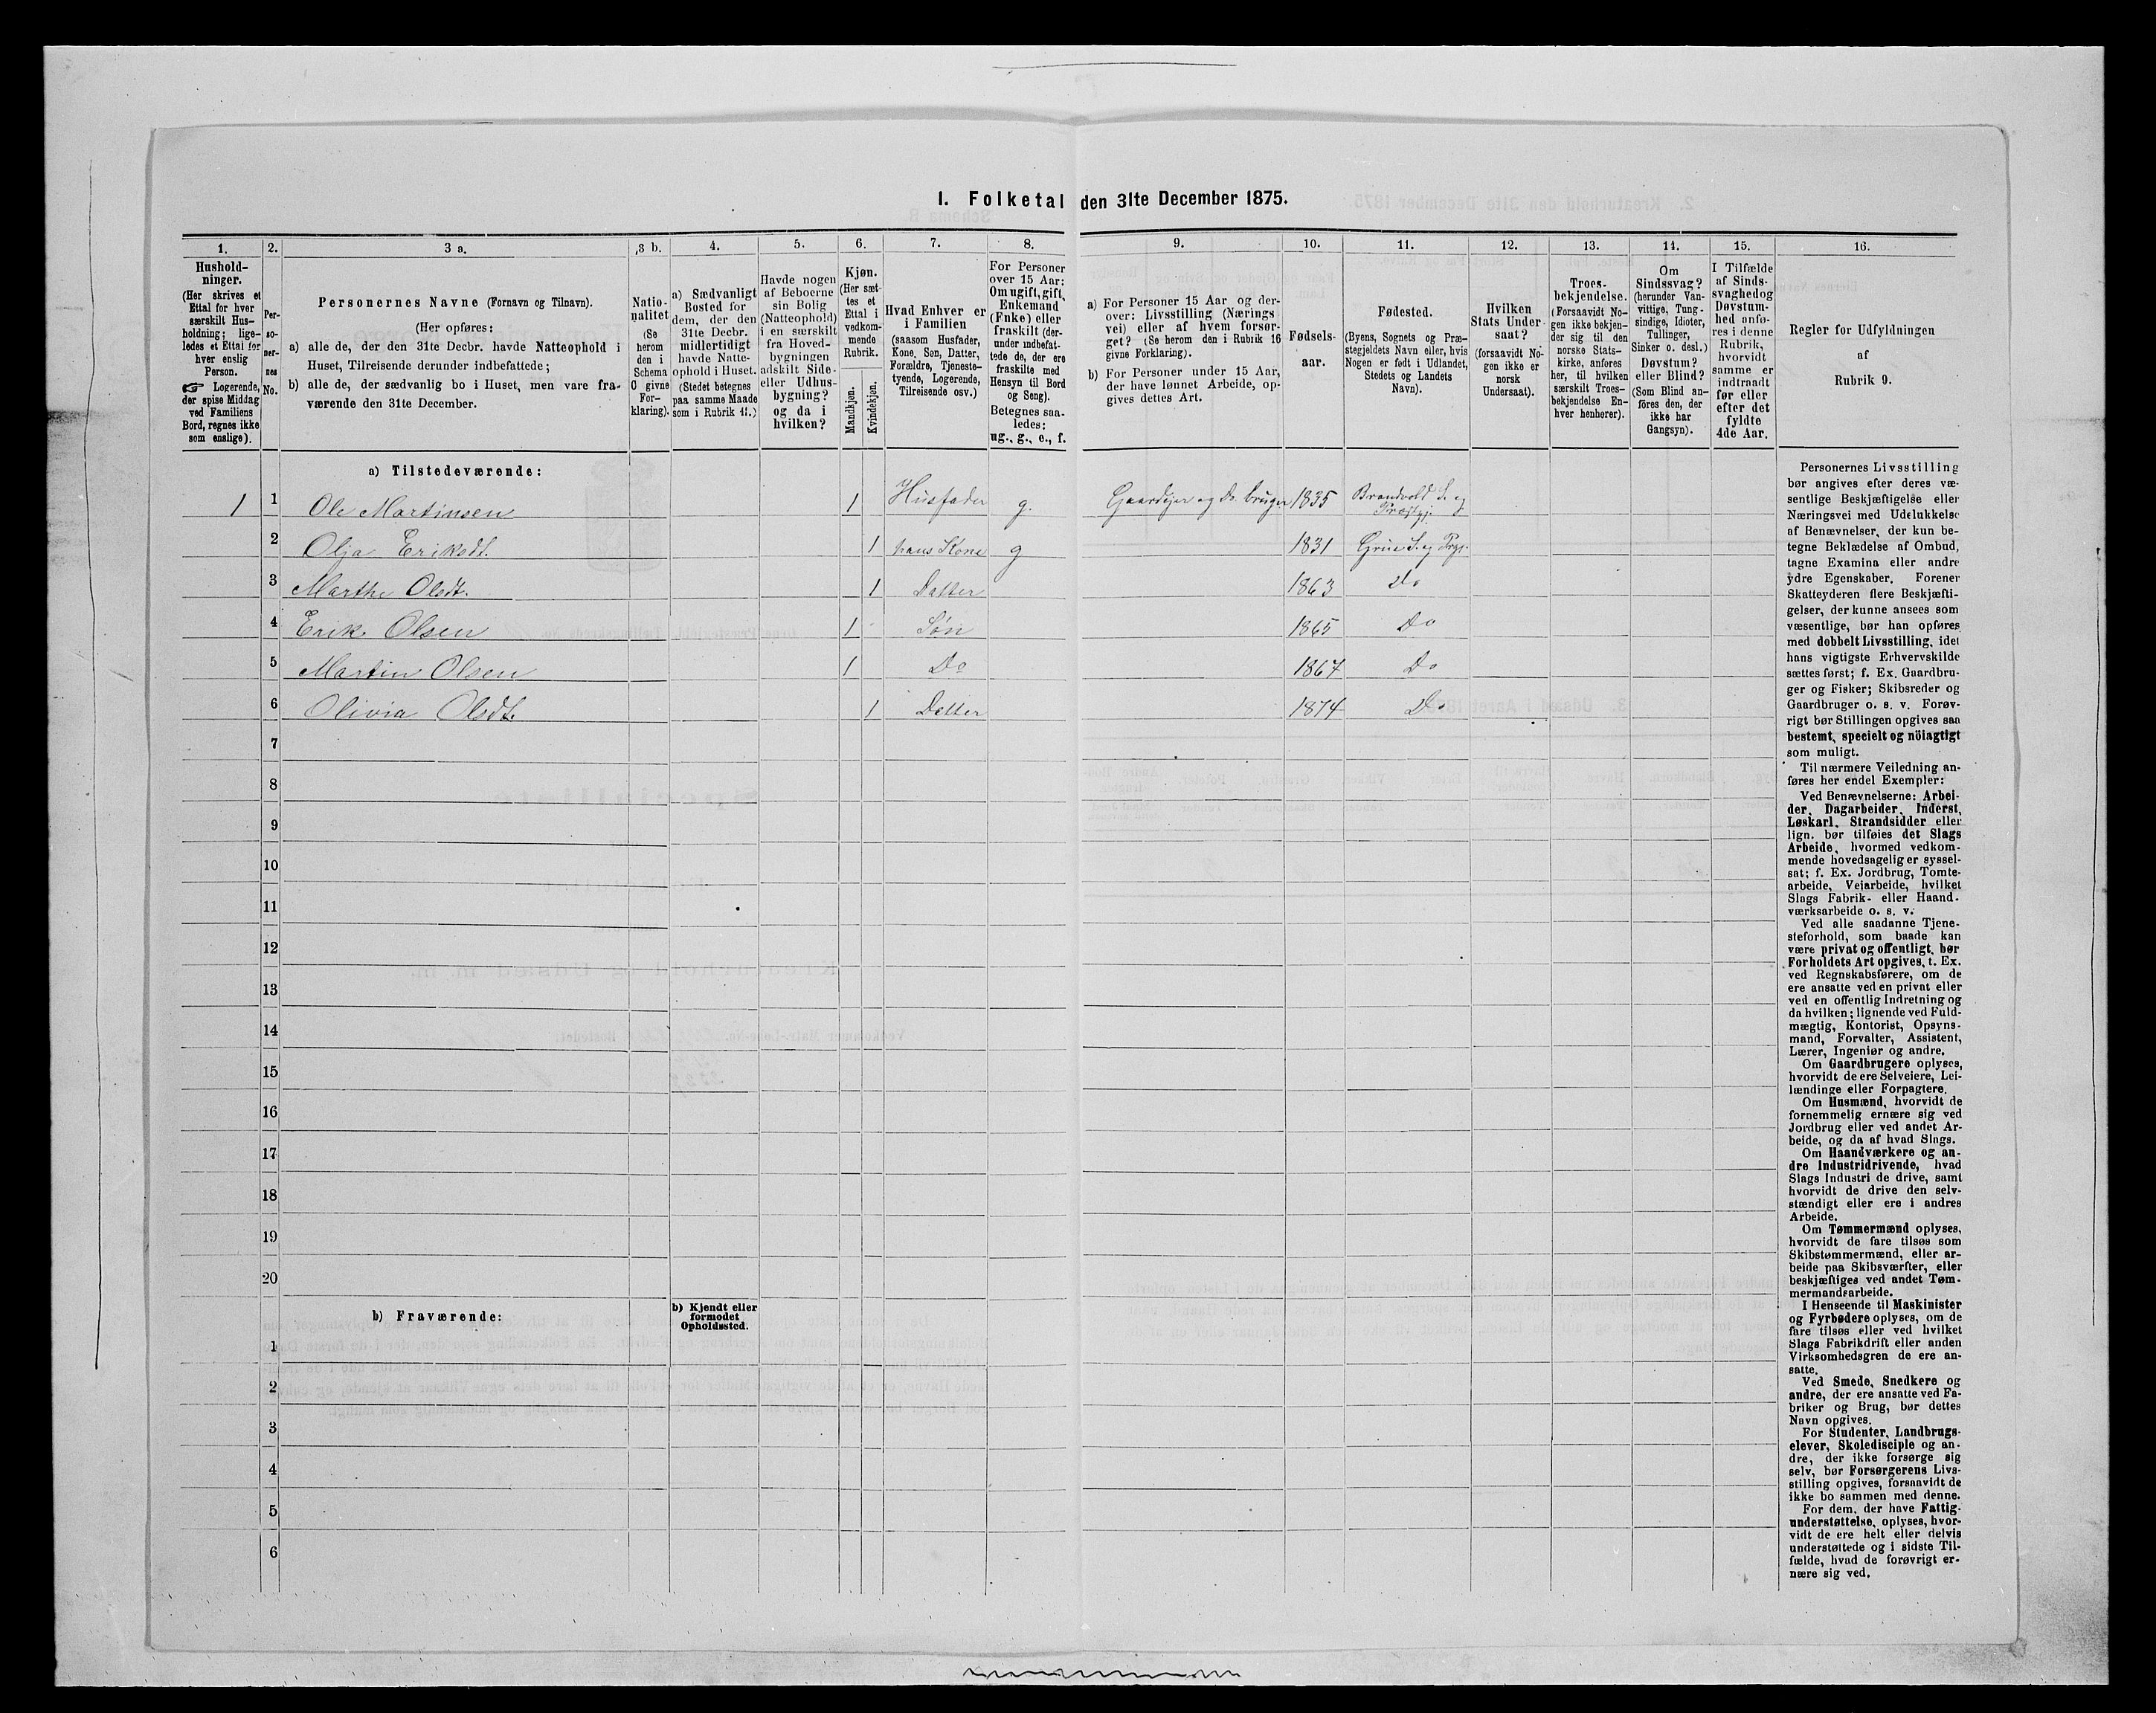 I. Folketal den 31te December 1875.
1. 2. 3 a. 3 b. 4. 5. 6. 7. 8. 9. 10. 11. 12. 13. 14. 15. 16.
Hushold-
ninger.
(Her skrives et
Ettal for hver
særskilt Hus-
holdning; lige-
ledes et Ettal for
hver enslig
Person.
☞ Logerende,
der spise Middag
ved Familiens
Bord, regnes ikke
som enslige).
Per-
so-
ner-
nes
No.
Personernes Navne (Fornavn og Tilnavn).
(Her opføres:
a) alle de, der den 31te Decbr. havde Natteophold i
Huset, Tilreisende derunder indbefattede;
b) alle de, der sædvanlig bo i Huset, men vare fra-
værende den 31te December.
Natio-
nalitet
(Se
herom
den i
Schema
O givne
For-
klaring).
a) Sædvanligt
Bosted for
dem, der den
31te Decbr.
midlertidigt
havde Natte-
ophold i Huset.
(Stedet betegnes
paa samme Maade
som i Rubrik 11.)
Havde nogen
af Beboerne
sin Bolig
(Natteophold)
i en særskilt
fra Hoved-
bygningen
adskilt Side-
eller Udhus-
bygning?
og da i
hvilken?
Kjøn.
(Her sæt-
tes et
Ettal i
vedkom-
mende
Rubrik.
Mandkjøn.
Kvindekjøn.
Hvad Enhver er
i Familien
(saasom Husfader,
Kone, Søn, Datter,
Forældre, Tjeneste-
tyende, Logerende,
Tilreisende osv.)
For Personer
over 15 Aar:
Om ugift, gift,
Enkemand
(Enke) eller
fraskilt (der-
under indbefat-
tede de, der ere
fraskilte med
Hensyn til Bord
og Seng).
Betegnes saa-
ledes:
ug., g., e., f.
a) For Personer 15 Aar og der-
over: Livsstilling (Nærings
vei) eller af hvem forsør-
get? (Se herom den i Rubrik 16
givne Forklaring).
b) For Personer under 15 Aar,
der have lønnet Arbeide, op-
gives dettes Art.
Fødsels-
aar.
Fødested.
(Byens, Sognets og Præ-
stegjeldets Navn eller, hvis
Nogen er født i Udlandet,
Stedets og Landets
Navn).
Hvilken
Stats Under-
saat?
(forsaavidt No-
gen ikke er
norsk
Undersaat).
Troes-
bekjendelse.
(Forsaavidt No-
gen ikke bekjen-
der sig til den
norske Stats-
kirke, anføres
her, til hvilken
særskilt Troes-
bekjendelse En-
hver henhører).
Om
Sindssvag?
(herunder Van-
vittige, Tung-
sindige, Idioter,
Tullinger,
Sinker o. desl.)
Døvstum?
eller Blind?
(Som Blind an-
føres den, der
ikke har
Gangsyn).
I Tilfælde
af Sinds-
svaghed og
Døvstum-
hed anfø-
res i denne
Rubrik,
hvorvidt
samme er
indtraadt
før eller
efter det
fyldte
4de Aar.
Regler for Udfyldningen
af
Rubrik 9.
a) Tilstedeværende:
1 1 Ole Martinsen 1 Husfader g. Gaardejer og Do bruger 1835 Brandvold S. og
Præstgj.
2 Olja Eriksdt. 1 hans Kone g 1831 Grue S. og Prgj.
3 Marthe Olsdt. 1 Datter 1863 Do
4 Erik Olsen 1 Søn 1865 Do
5 Martin Olsen 1 Do 1867 Do
6 Olivia Olsdt. 1 Datter 1874 Do
7
8
9
10
11
12
13
14
15
16
17
18
19
20
b) Fraværende:
b) Kjendt eller
formodet
Opholdssted.
1
2
3
4
5
6
Personernes Livsstilling
bør angives efter deres væ-
sentlige Beskjæftigelse eller
Næringsvei med Udelukkelse
af Benævnelser, der kun be-
tegne Beklædelse af Ombud,
tagne Examina eller andre
ydre Egenskaber. Forener
Skatteyderen flere Beskjæfti-
gelser, der kunne ansees som
væsentlige, bør han opføres
med dobbelt Livsstilling, idet
hans vigtigste Erhvervskilde
sættes først; f. Ex. Gaardbru-
ger og Fisker; Skibsreder og
Gaardbruger o. s. v. Forøv-
rigt bør Stillingen opgives saa
bestemt, specielt og nöiagtigt
som muligt.
Til nærmere Veiledning an-
føres her endel Exempler:
Ved Benævnelserne: Arbei-
der, Dagarbeider, Inderst,
Løskarl, Strandsidder eller
lign. bør tilføies det Slags
Arbeide, hvormed vedkom-
mende hovedsagelig er syssel-
sat; f. Ex. Jordbrug, Tomte-
arbeide, Veiarbeide, hvilket
Slags Fabrik- eller Haand-
værksarbeide o. s. v.
Ved alle saadanne Tjene-
steforhold, som baade kan
være privat og offentligt, bør
Forholdets Art opgives, t. Ex.
ved Regnskabsførere, om de
ere ansatte ved en privat eller
ved en offentlig Indretning og
da hvilken; lignende ved Fuld-
mægtig, Kontorist, Opsyns-
mand, Forvalter, Assistent,
Lærer, Ingeniør og andre.
Om Gaardbrugere oplyses,
hvorvidt de ere Selveiere, Lei-
lændinge eller Forpagtere.
Om Husmænd, hvorvidt de
fornemmelig ernære sig ved
Jordbrug eller ved andet Ar-
beide, og da af hvad Slags.
Om Haandværkere og an-
dre Industridrivende, hvad
Slags Industri de drive, samt
hvorvidt de drive den selv-
stændigt eller ere i andres
Arbeide.
Om Tømmermænd oplyses,
hvorvidt de fare tilsøs som
Skibstømmermænd, eller ar-
beide paa Skibsværfter, eller
beskjæftiges ved andet Tøm-
mermandsarbeide.
I Henseende til Maskinister
og Fyrbødere oplyses, om de
fare tilsøs eller ved hvilket
Slags Fabrikdrift eller anden
Virksomhedsgren de ere an-
satte.
Ved Smede, Snedkere og
andre, der ere ansatte ved Fa-
briker og Brug, bør dettes
Navn opgives.
For Studenter, Landbrugs-
elever, Skoledisciple og an-
dre, der ikke forsørge sig
selv, bør Forsørgerens Livs-
stilling opgives, forsaavidt de
ikke bo sammen med denne.
For dem, der have Fattig-
understøttelse, oplyses, hvor-
vidt de ere helt eller delvis
understøttede og i sidste Til-
fælde, hvad de forøvrigt er-
nære sig ved.